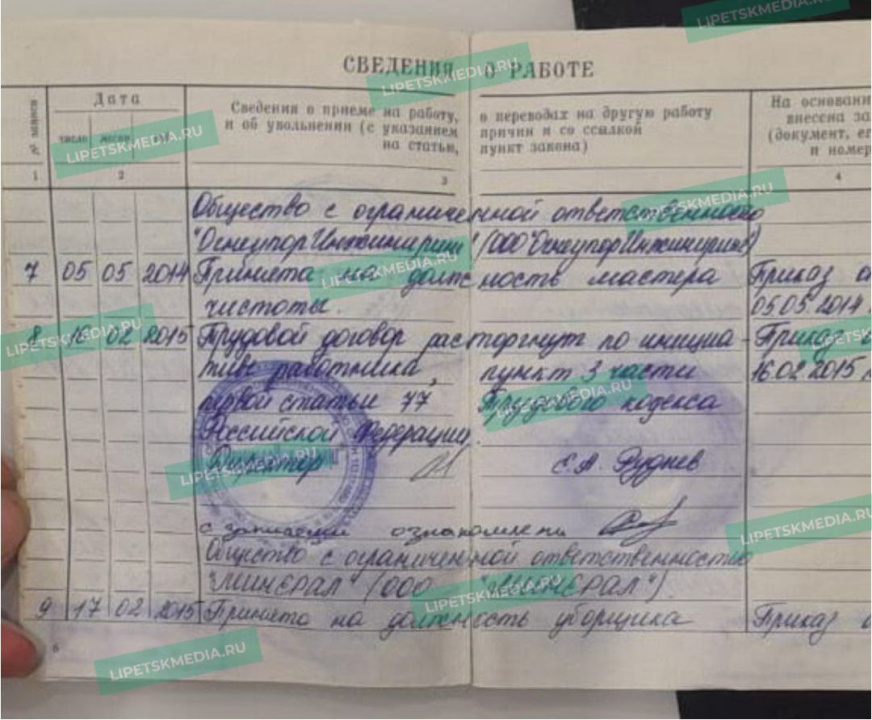 СВЕДЕНИЯ О РАБОТЕ
№ записи
Дата
Сведения о приеме на работу, о переводах на другую работу
и об увольнении (с указанием причин и со ссылкой
на статью, пункт закона)
На основании
внесена за
(документ, ег
и номер
число месяц
1 2 3 4
Общество с ограниченной ответственностью
"ОгнеупорИнжиниринг" (ООО "ОгнеупорИнжиниринг")
7 05 05 2014 Принята на должность мастера Приказ от
чистоты. 05.05.2014
8 16 02 2015 Трудовой договор расторгнут по инициа- Приказ
тиве работника, пункт 3 части 16.02.2015
первой статьи 77 Трудового кодекса
Российской Федерации.
Директор Е.А. Руднев
с записями ознакомлена
Общество с ограниченной ответственностью
"МИНЕРАЛ" (ООО "МИНЕРАЛ")
9 17 02 2015 Принята на должность уборщика Приказ о
6
LIPETSKMEDIA.RU
LIPETSKMEDIA.RU
LIPETSKMEDIA.RU
LIPETSKMEDIA.RU
LIPETSKMEDIA.RU
LIPETSKMEDIA.RU
LIPETSKMEDIA.RU
LIPETSKMEDIA.RU
LIPETSKMEDIA.RU
LIPETSKMEDIA.RU
LIPETSKMEDIA.RU